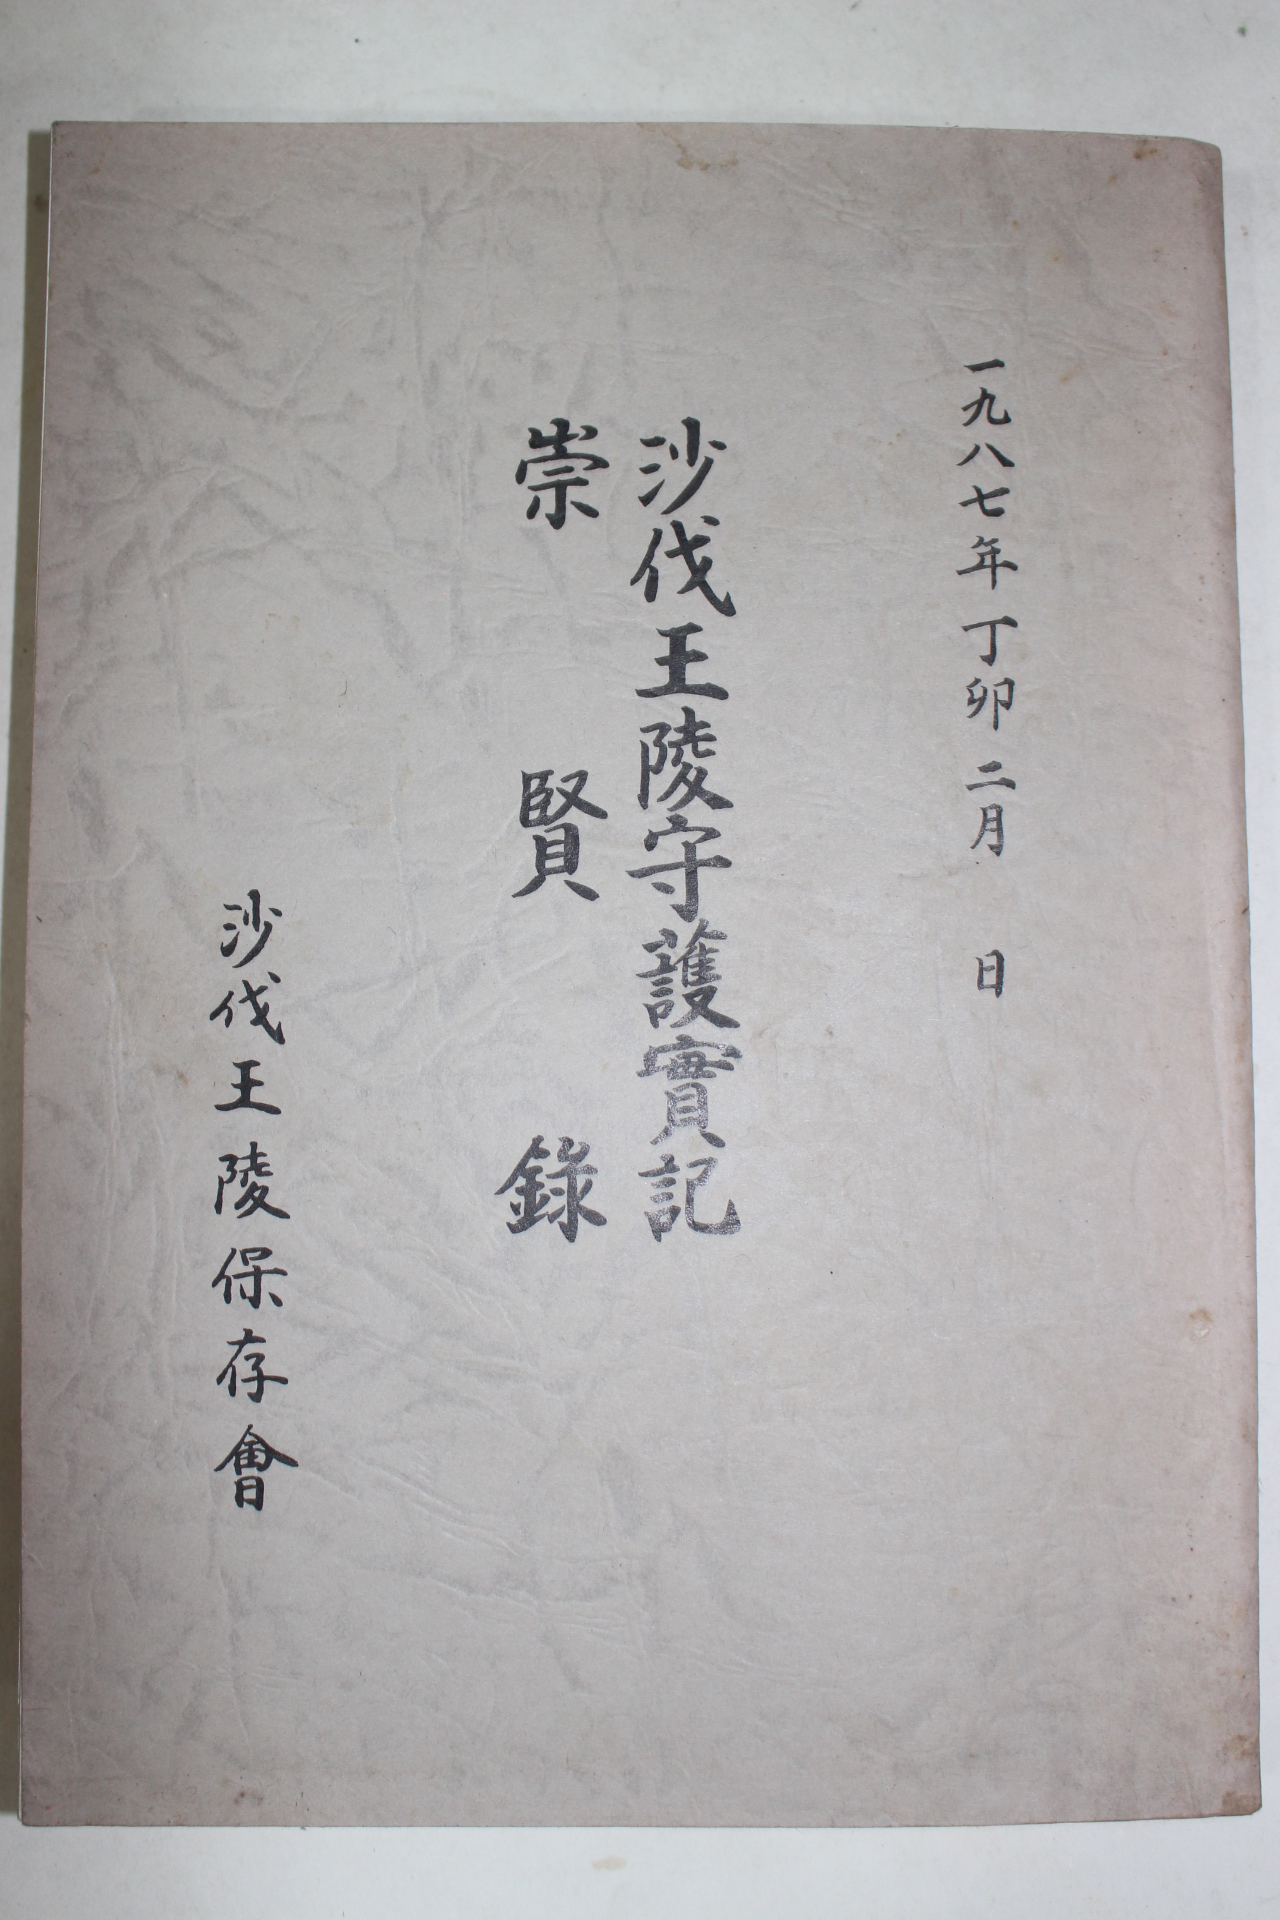 一九八七年丁卯二月 日
沙伐王陵守護實記
崇賢錄
沙伐王陵保存會